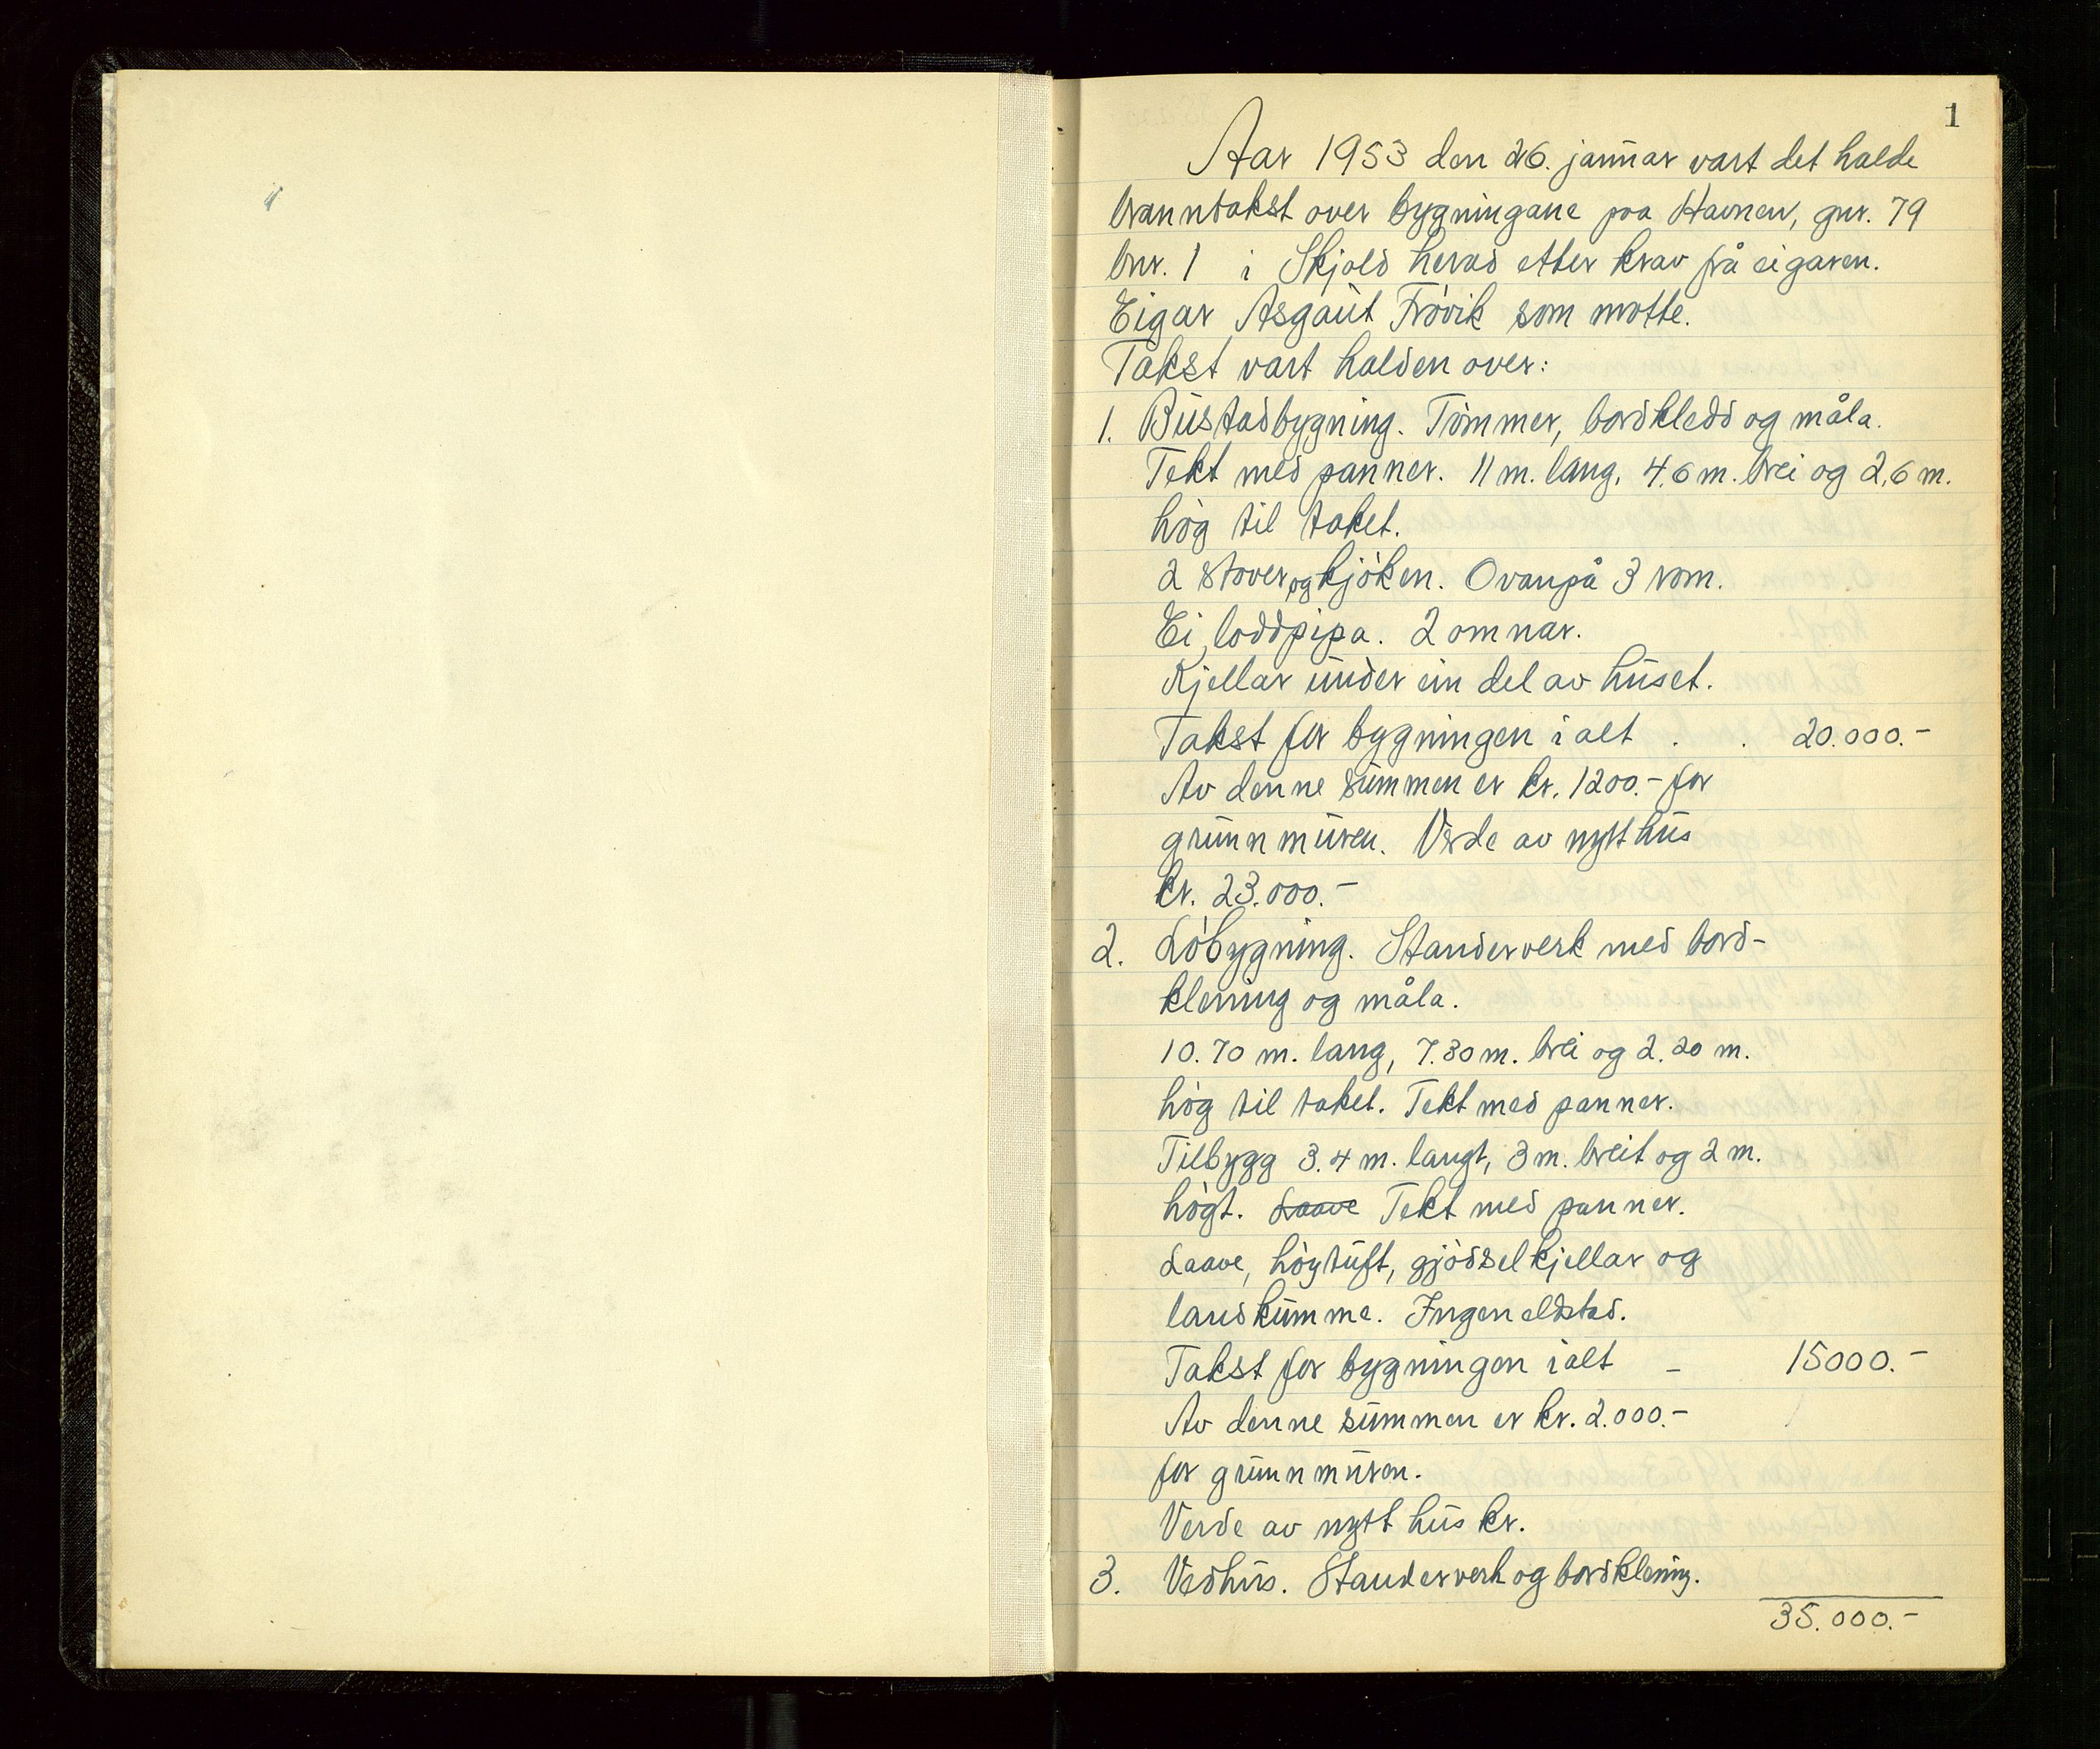 1
Aar 1953 den 26. januar vart det halde
branntakst over bygningane paa Havnen, gnr. 79
bnr. 1 i Skjold herad etter krav frå eigaren.
Eigar Asgaut Frövik som møtte.
Takst vart halden over:
1. Bustadbygning. Tömmer, bordkledd og måla.
Tekt med panner. 11 m. lang, 4,6 m. brei og 2,6 m.
hög til taket.
2 stover og kjöken. Ovanpå 3 rom.
Ei loddpipa. 2 omnar.
Kjellar under ein del av huset.
Takst for bygningen i alt . . 20.000.-
Av denne summen er kr. 1200.- for
grunnmuren. Verde av nytt hus
kr. 23.000.-
2. Löbygning. Standerverk med bord-
klening og måla.
10.70 m. lang, 7.30 m. brei og 2.20 m.
hög til taket. Tekt med panner.
Tilbygg 3.4 m. langt, 3 m. breit og 2 m.
högt. Laave Tekt med panner.
Laave, höytuft, gjödselkjellar og
landkumme. Ingen eldstad.
Takst for bygningen i alt - 15000.-
Av denne summen er kr. 2.000.-
for grunnmuren.
Verde av nytt hus kr.
3. Vedhus. Standerverk og bordklening.
35.000.-